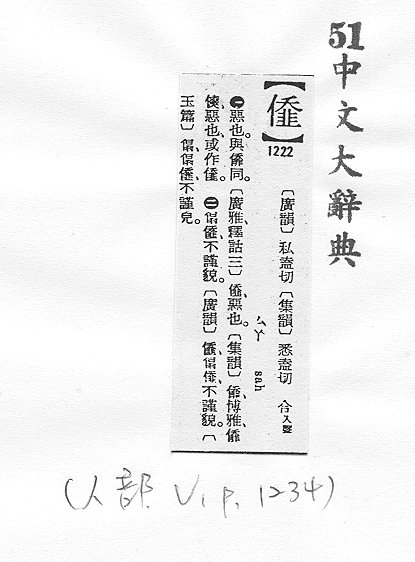 51中文大辭典
【】
1222
〔廣韻〕私盍切〔集韻〕悉盍切 合入聲
ㄙㄚ sah
㊀惡也與同。〔廣雅釋詁三〕、惡也。〔集韻〕、博雅、
、惡也、或作。㊁傝、不謹貌。〔廣韻〕、傝、不謹貌。〔
玉篇〕傝、傝、不謹皃。
(人部 V.1 p.1234)